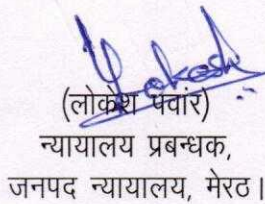 Lokesh
(लोकेश पंवार)
न्यायालय प्रबन्धक,
जनपद न्यायालय, मेरठ।